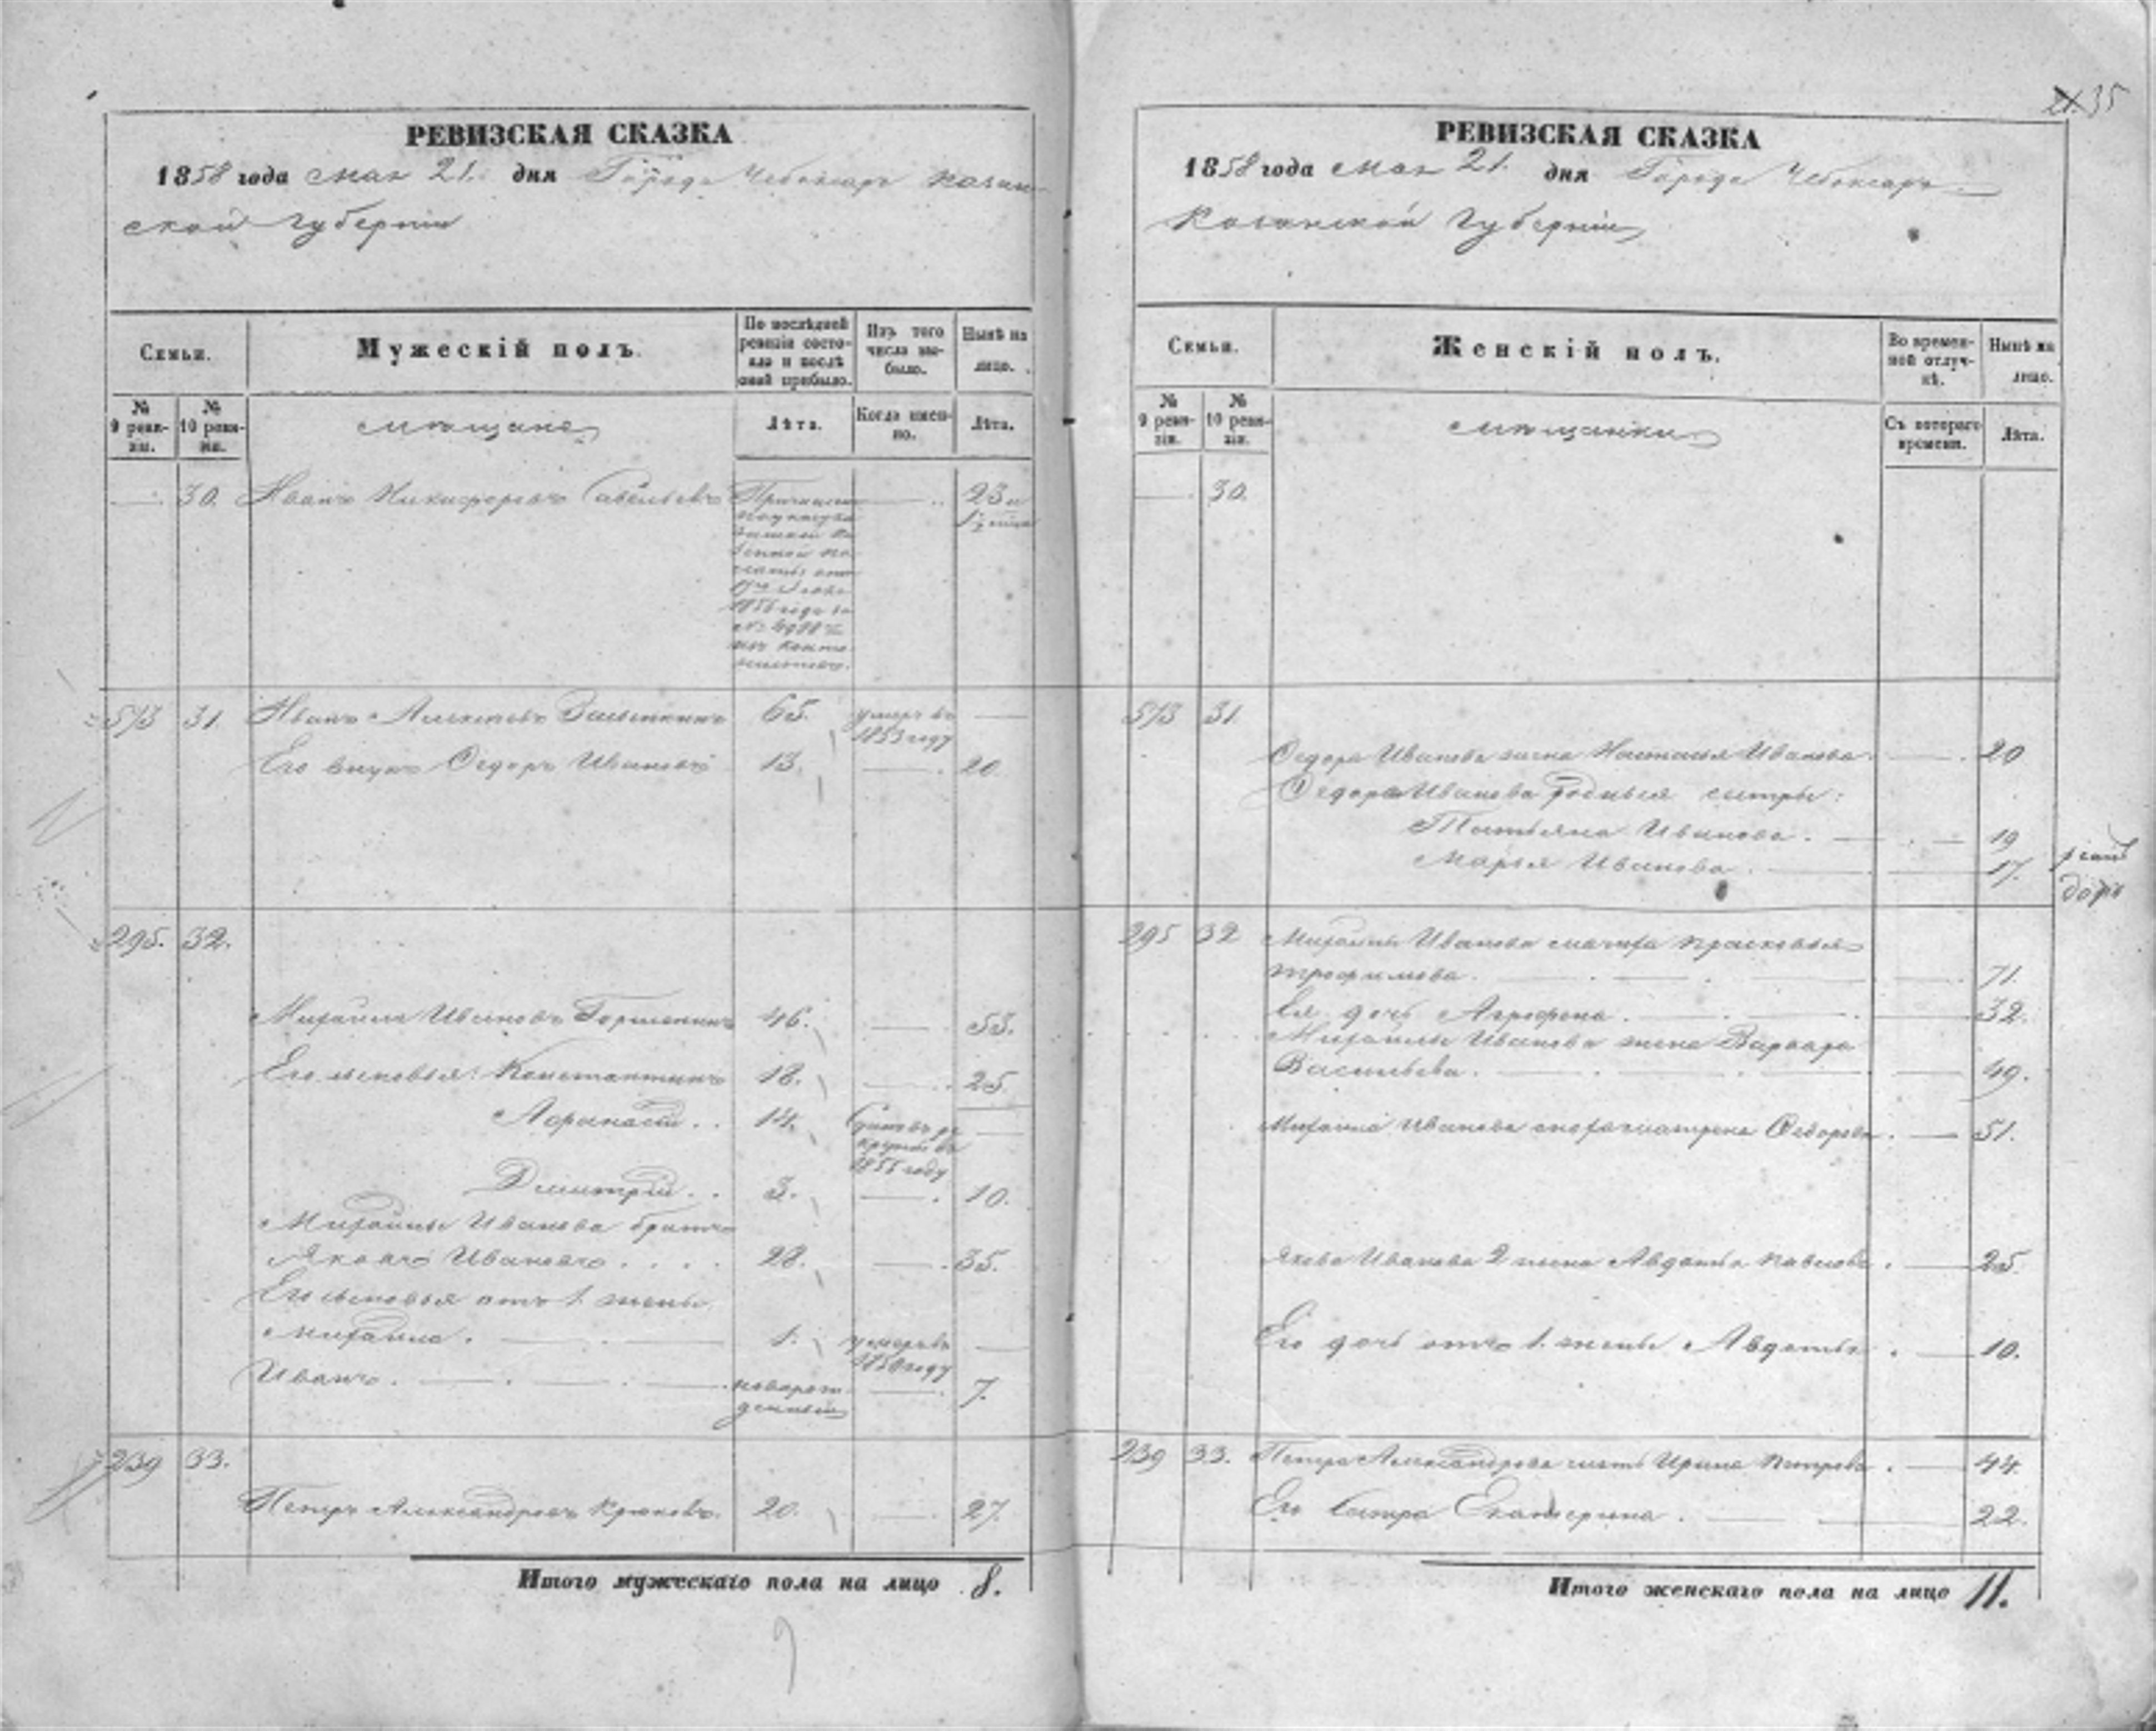 35
РЕВИЗСКАЯ СКАЗКА
1858 года мая 21. дня Города Чебоксаръ Казан-
ской Губерніи
Семьи.
Мужескій полъ.
По послѣдней ревизіи состояло и послѣ оной прибыло.
Изъ того числа выбыло.
Нынѣ на лицо.
№ 9 ревизіи.
№ 10 ревизіи.
мѣщане
Лѣта.
Когда именно.
Лѣта.
30. Иванъ Никифоровъ Савельевъ 23 и
1856 года за
513 31. Иванъ Алексѣевъ 65. умеръ въ 1853 году —
Его внукъ Ѳедоръ Ивановъ 13. — 20
295. 32.
Михайла Ивановъ Горшенинъ 46. — 53.
Его сыновья: Константинъ 18. — 25.
Афанасій . . 14. Сданъ въ рекруты въ 1855 году —
Дмитрій . . 3. — 10.
Михайлы Иванова братъ
Яковъ Ивановъ . . . . 28. — 35.
Его сыновья отъ 1. жены
Михайла . 1. умеръ въ 1850 году —
Иванъ . новорожденный — 7.
239 33.
Петръ Александровъ Крюковъ. 20. — 27.
Итого мужескаго пола на лицо 8.
РЕВИЗСКАЯ СКАЗКА
1858 года мая 21. дня Города Чебоксаръ
Казанской Губерніи
Семьи.
Женскій полъ.
Во временной отлучкѣ.
Нынѣ на лицо.
№ 9 ревизіи.
№ 10 ревизіи.
мѣщанки
Съ котораго времени.
Лѣта.
30.
513 31.
Ѳедора Иванова жена Настасья Иванова — 20
Ѳедора Иванова родныя сестры:
Татьяна Иванова. — 19
Марья Иванова — 17.
295 32 Михайлы Иванова мачиха Прасковья
Трофимова. — 71.
Ея дочь Агрофена. — 32.
Михайлы Иванова жена Варвара
Васильева. — 49.
Михайла Иванова сноха Матрена Ѳедорова. — 51.
Якова Иванова 2 жена Авдотья Павлова. — 25.
Его дочь отъ 1. жены Авдотья . — 10.
239 33. Петра Александрова мать Ирина Петрова . — 44.
Его Сестра Екатерина . — 22.
Итого женскаго пола на лицо 11.